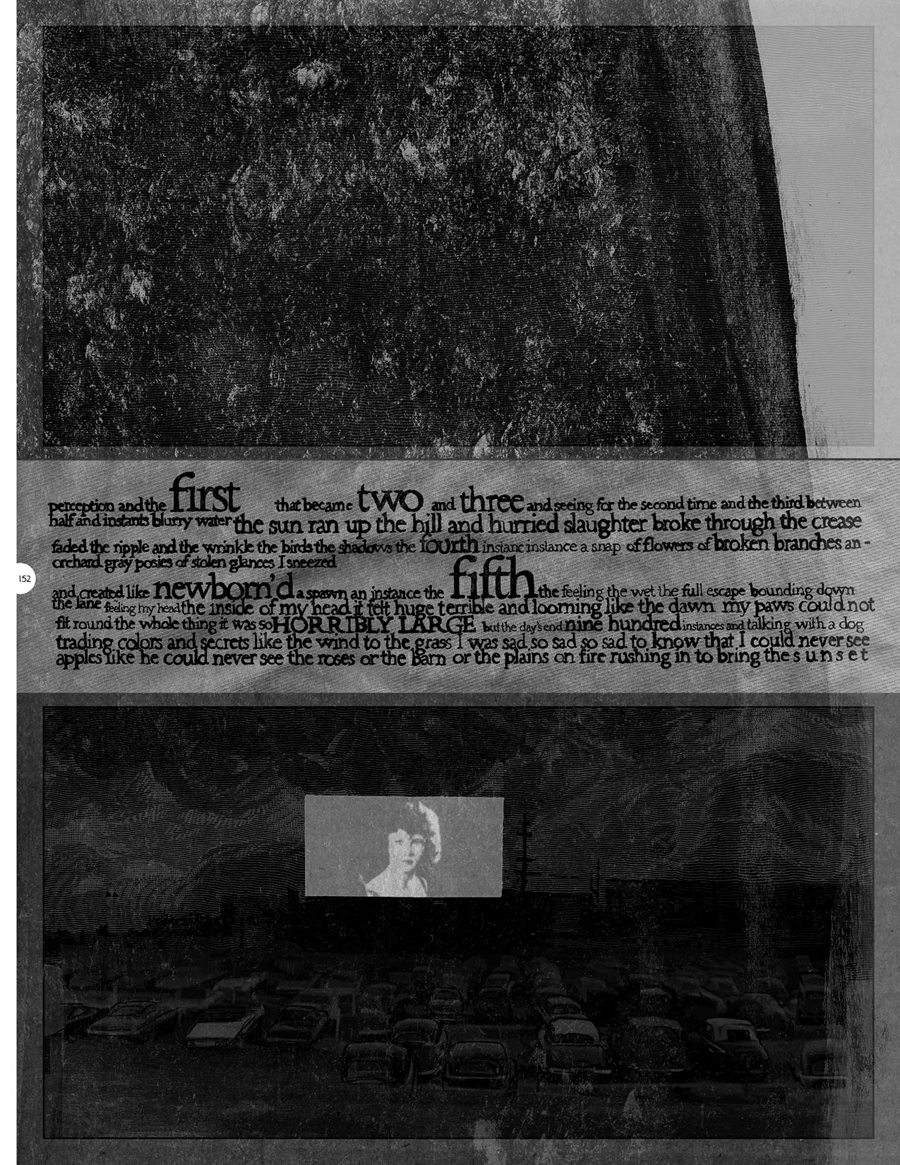 152
perception and the first that became two and three and seeing for the second time and the third between
half and instants blurry water the sun ran up the hill and hurried slaughter broke through the crease
faded the ripple and the wrinkle the birds the shadows the fourth instanc instance a snap of flowers of broken branches an -
orchard gray posies of stolen glances I sneezed
and created like newborn'd a spawn an instance the fifth the feeling the wet the full escape bounding down
the lane feeling my head the inside of my head it felt huge terrible and looming like the dawn my paws could not
fit round the whole thing it was so HORRIBLY LARGE but the day's end nine hundred instances and talking with a dog
trading colors and secrets like the wind to the grass I was sad so sad so sad to know that I could never see
apples like he could never see the roses or the Barn or the plains on fire rushing in to bring the sunset